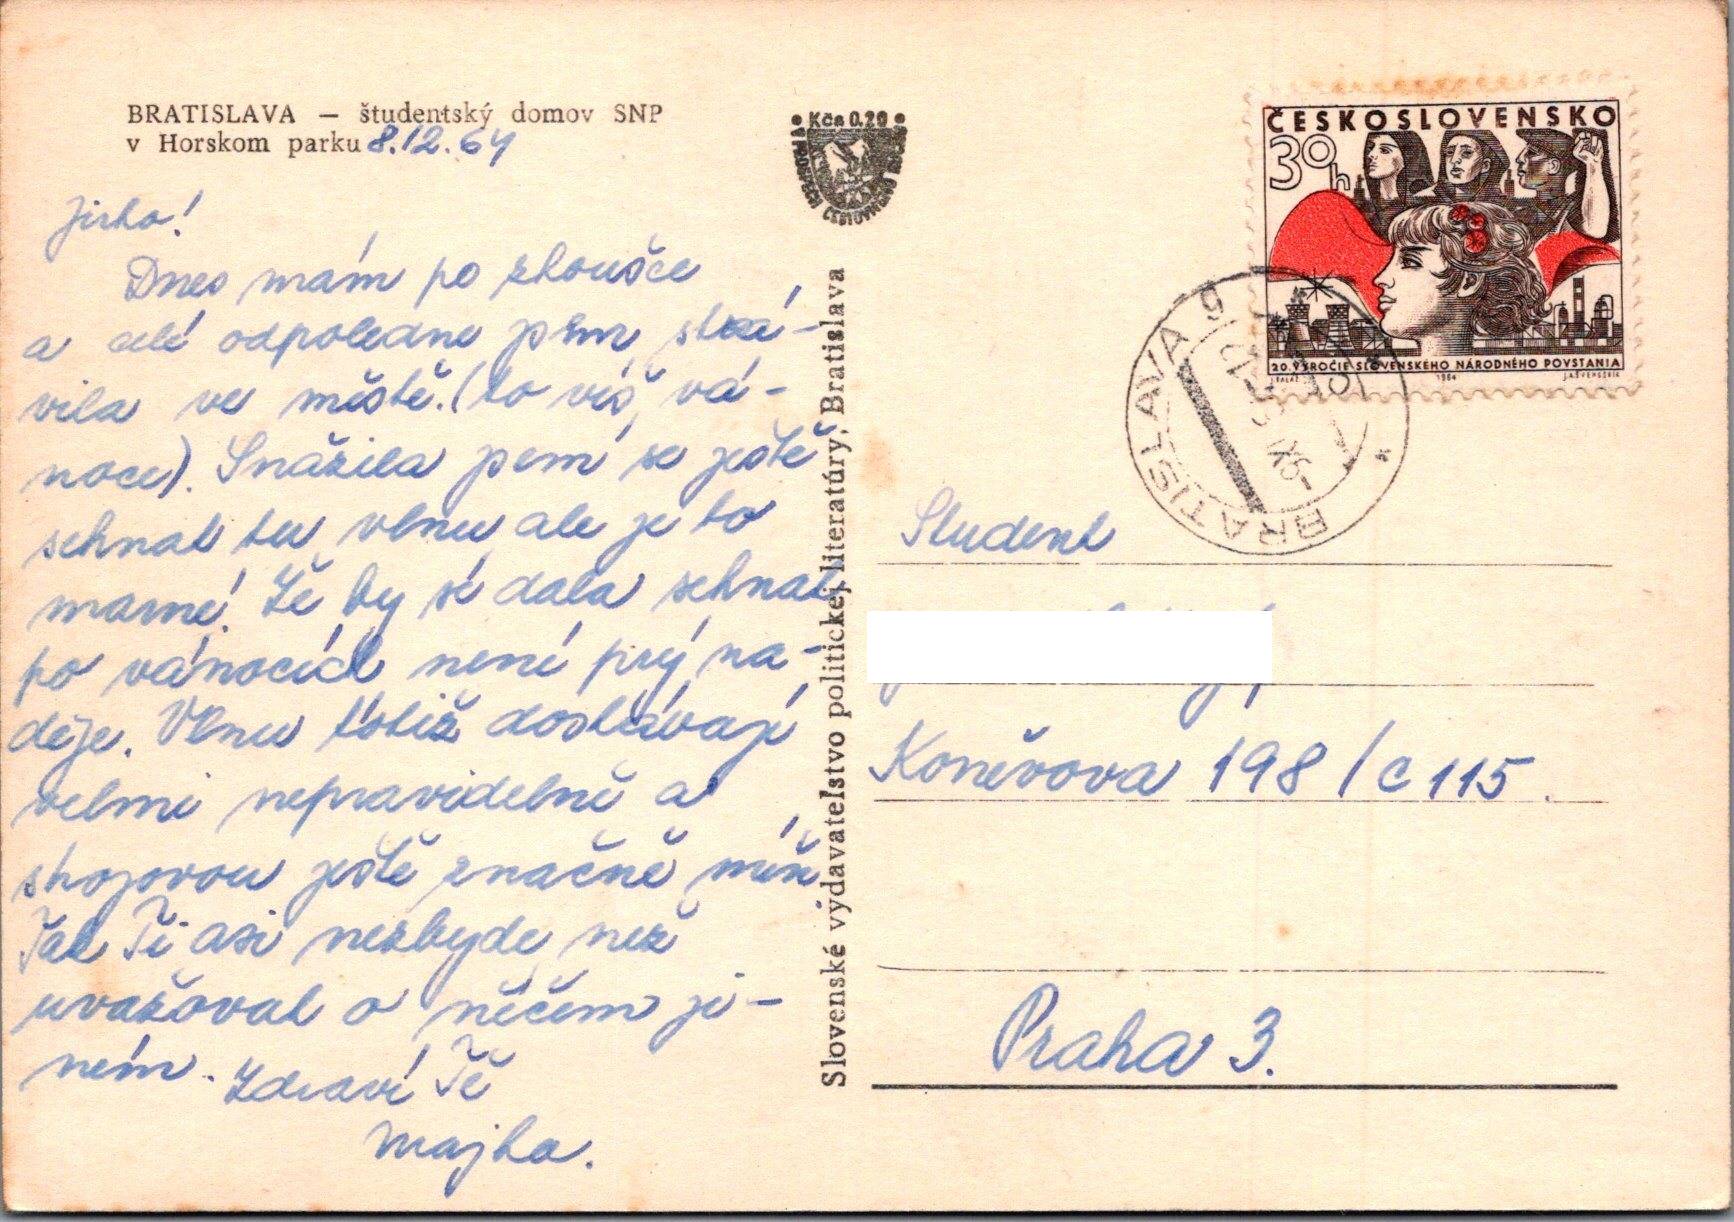 BRATISLAVA — študentský domov SNP
v Horskom parku 8.12.64
Jirko!
Dnes mám po zkoušce
a celé odpoledne jsem strá-
vila ve městě. (to víš vá-
noce). Snažila jsem se ještě
sehnat tu vlnu ale je to
marné. Že by se dala sehnat
po vánocích není prý na-
děje. Vlnu totiž dostávají
velmi nepravidelně a
strojovou ještě značně míň.
Tak Ti asi nezbyde než
uvažovat o něčem ji-
ném. Zdraví Tě
Majka.
Kčs 0.20
Slovenské vydavateľstvo politickej literatúry, Bratislava
ČESKOSLOVENSKO
30h
20. VÝROČIE SLOVENSKÉHO NÁRODNÉHO POVSTANIA
1964
J.A.ŠVENGSBÍR
BRATISLAVA
Student
Koněvova 198/c 115.
Praha 3.